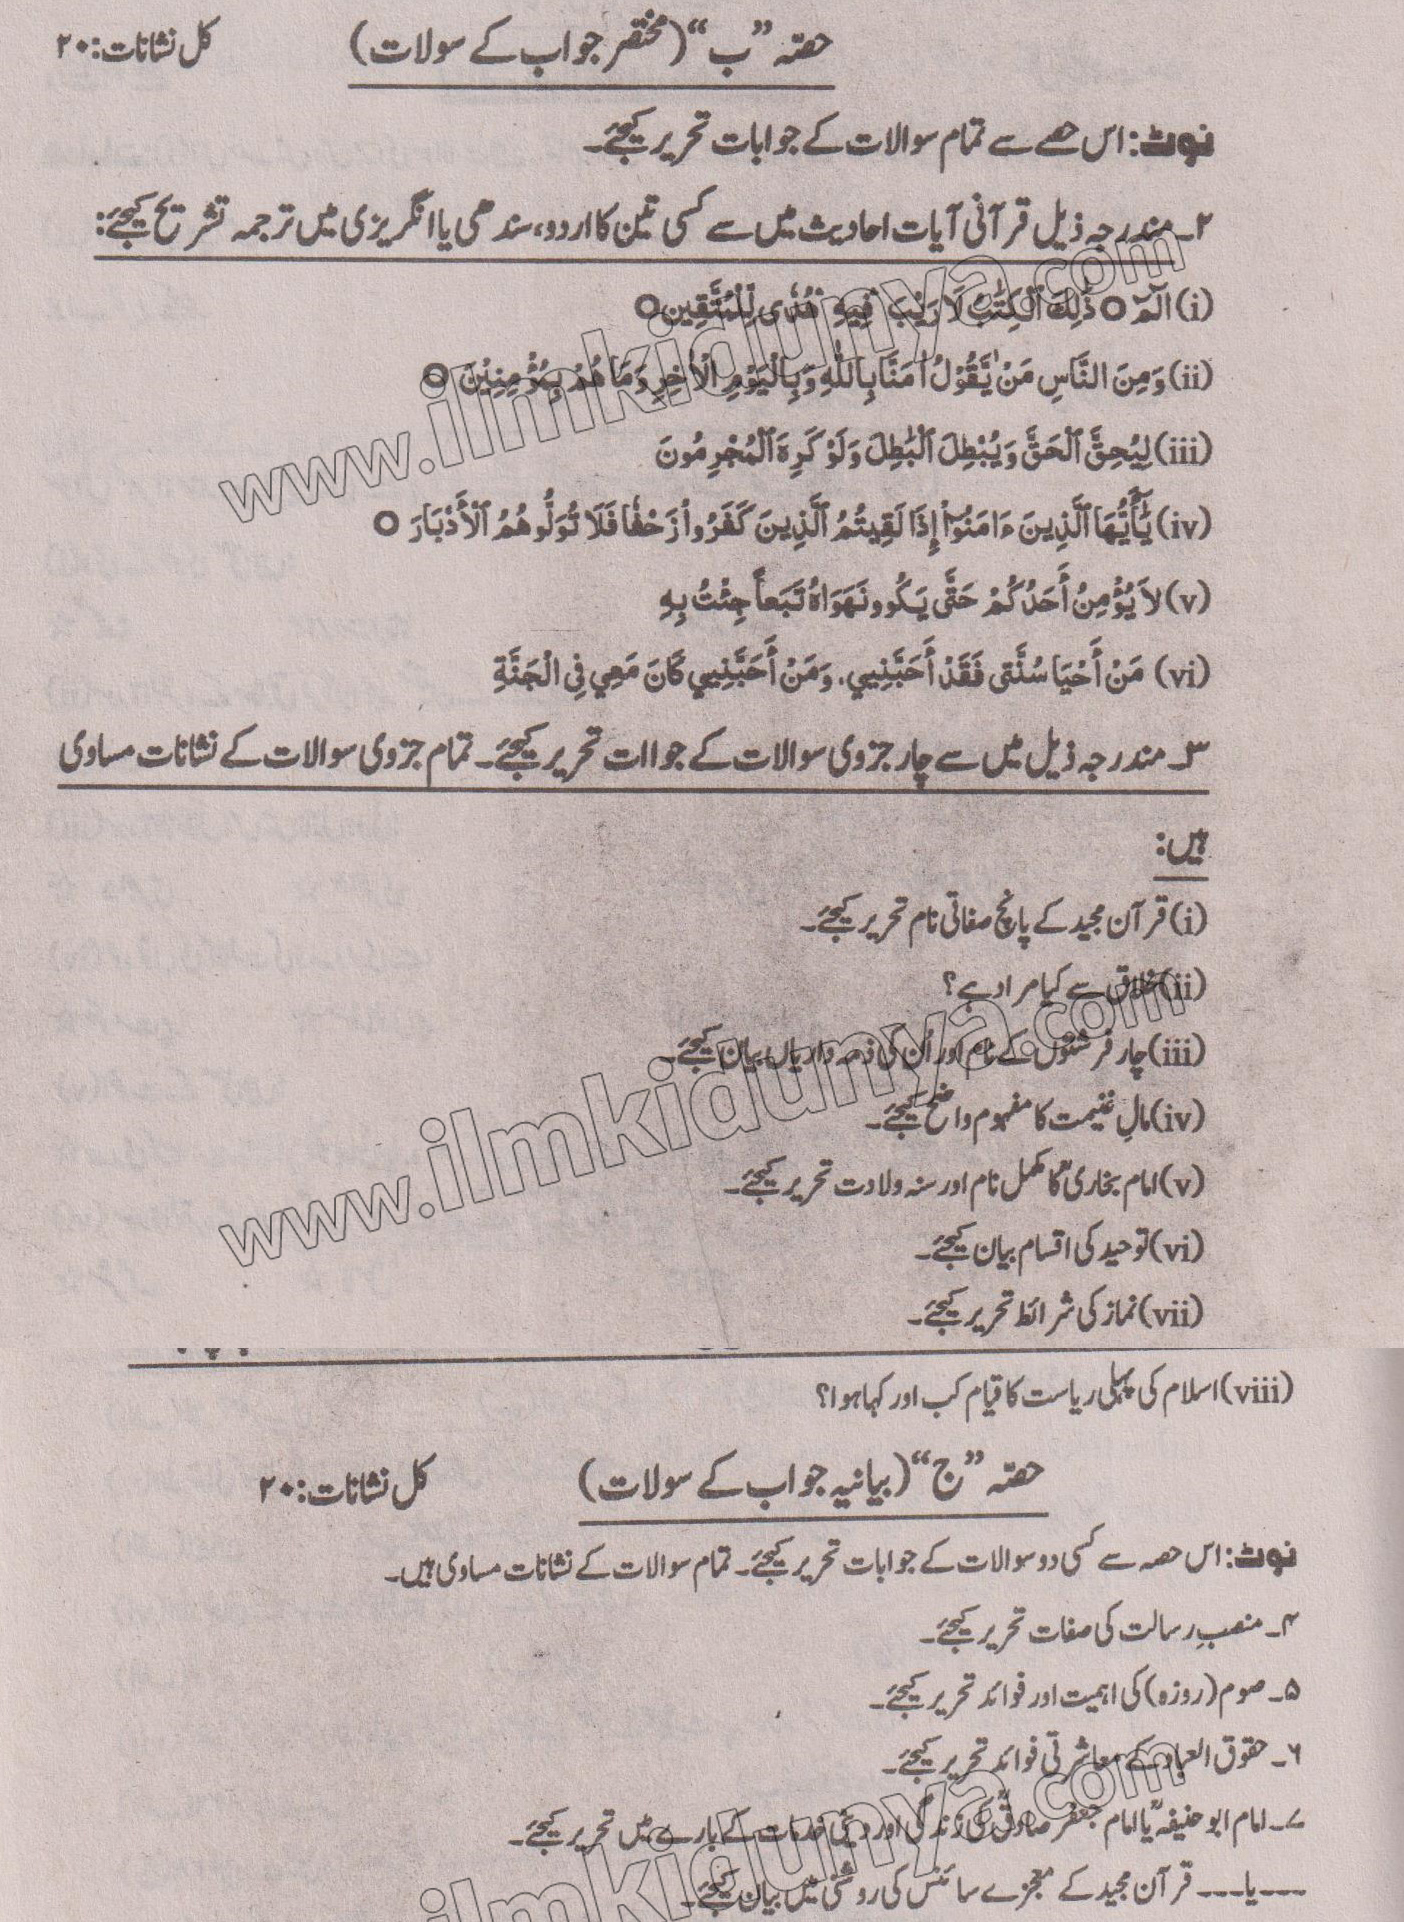 حصّہ ”ب“ (مختصر جواب کے سولات) کل نشانات: ۲۰
نوٹ: اس حصے سے تمام سوالات کے جوابات تحریر کیجئے۔
۲۔ مندرجہ ذیل قرآنی آیات احادیث میں سے کسی تین کا اردو، سندھی یا انگریزی میں ترجمہ تشریح کیجئے:
(i) الٓمّٓ ○ ذٰلِكَ الْكِتٰبُ لَا رَيْبَ فِيْهِ هُدًى لِّلْمُتَّقِين○
(ii) وَمِنَ النَّاسِ مَنْ يَّقُوْلُ اٰمَنَّا بِاللّٰهِ وَبِالْيَوْمِ الْاٰخِرِ وَمَا هُمْ بِمُؤْمِنِيْنَ ○
(iii) لِيُحِقَّ ٱلْحَقَّ وَيُبْطِلَ ٱلْبَٰطِلَ وَلَوْ كَرِهَ ٱلْمُجْرِمُونَ
(iv) يَٰٓأَيُّهَا ٱلَّذِينَ ءَامَنُوٓا۟ إِذَا لَقِيتُمُ ٱلَّذِينَ كَفَرُوا۟ زَحْفًا فَلَا تُوَلُّوهُمُ ٱلْأَدْبَارَ ○
(v) لاَ يُؤْمِنُ أَحَدُكُمْ حَتَّى يَكُوونَهَوَاهُ تَبَعاً جِئْتُ بِهِ
(vi) مَنْ أَحْيَا سُنَّتِى فَقَدْ أَحَبَّنِيي. وَمَنْ أَحَبَّنِيي كَانَ مَعِي فِى الْجَنَّةِ
۳۔ مندرجہ ذیل میں سے چار جزوی سوالات کے جواات تحریر کیجئے۔ تمام جزوی سوالات کے نشانات مساوی
ہیں:
(i) قرآن مجید کے پانچ صفاتی نام تحریر کیجئے۔
(ii) اخلاق سے کیا مراد ہے؟
(iii) چار فرشتوں کے نام اور اُن کی ذمہ داریاں بیان کیجئے۔
(iv) مالِ غنیمت کا مفہوم واضح کیجئے۔
(v) امام بخاریؒ کا مکمل نام اور سنہ ولادت تحریر کیجئے۔
(vi) توحید کی اقسام بیان کیجئے۔
(vii) نماز کی شرائط تحریر کیجئے۔
(viii) اسلام کی پہلی ریاست کا قیام کب اور کہا ہوا؟
حصّہ ”ج“ (بیانیہ جواب کے سولات) کل نشانات: ۲۰
نوٹ: اس حصہ سے کسی دو سوالات کے جوابات تحریر کیجئے۔ تمام سوالات کے نشانات مساوی ہیں۔
۴۔ منصبِ رسالت کی صفات تحریر کیجئے۔
۵۔ صوم (روزہ) کی اہمیت اور فوائد تحریر کیجئے۔
۶۔ حقوق العباد کے معاشرتی فوائد تحریر کیجئے۔
۷۔ امام ابو حنیفہؒ یا امام جعفر صادقؒ کی زندگی اور دینی خدمات کے بارے میں تحریر کیجئے۔
----یا---- قرآن مجید کے معجزے سائنس کی روشنی میں بیان کیجئے۔
www.ilmkidunya.com
www.ilmkidunya.com
ilmkidunya.com